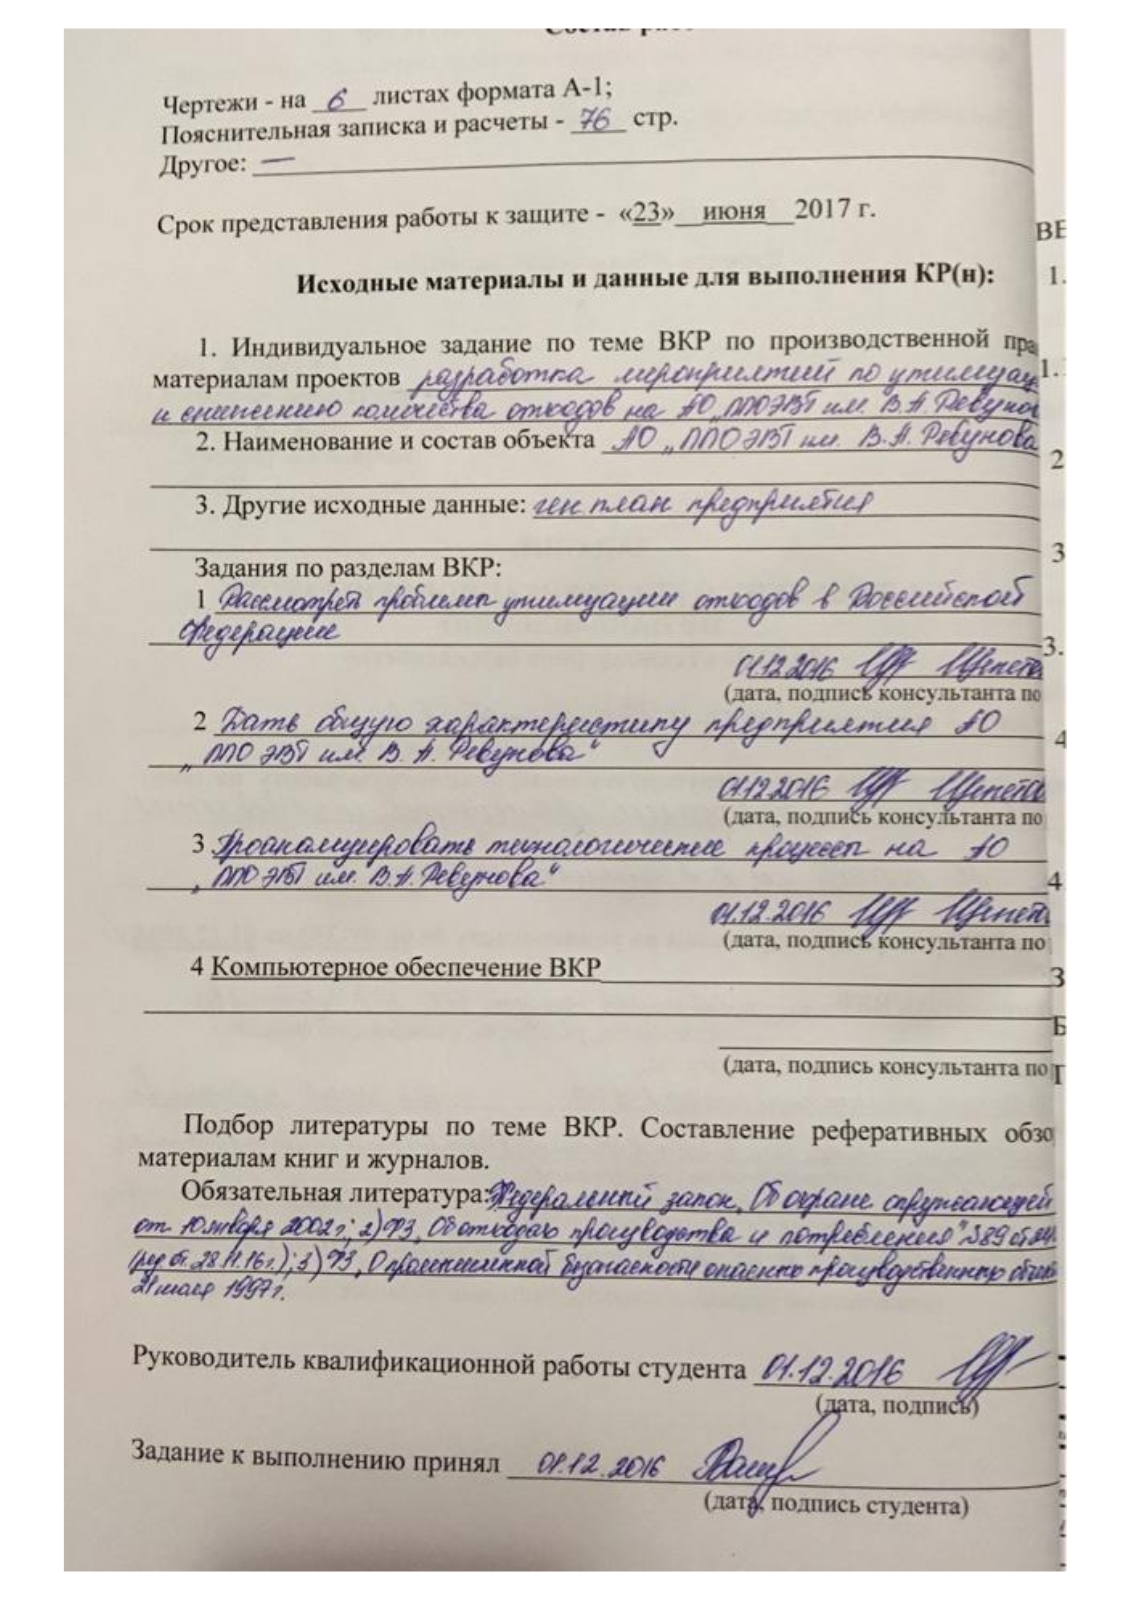 Чертежи - на 6 листах формата А-1;
Пояснительная записка и расчеты - 76 стр.
Другое: —
Срок представления работы к защите - «23» июня 2017 г.
Исходные материалы и данные для выполнения КР(н):
1. Индивидуальное задание по теме ВКР по производственной пра
материалам проектов разработка мероприятий по утилизац
и снижению количества отходов на АО „ППОЭВТ им. В.А. Ревунов
2. Наименование и состав объекта АО „ППОЭВТ им. В.А. Ревунова
3. Другие исходные данные: ген.план предприятия
Задания по разделам ВКР:
1 Рассмотреть проблемы утилизации отходов в Российской
Федерации
01.12.2016
(дата, подпись консультанта по
2 Дать общую характеристику предприятия АО
„ППО ЭВТ им. В. А. Ревунова“
01.12.2016
(дата, подпись консультанта по
3 Проанализировать технологические процессы на АО
„ППО ЭВТ им. В.А. Ревунова“
01.12.2016
(дата, подпись консультанта по
4 Компьютерное обеспечение ВКР
(дата, подпись консультанта по
Подбор литературы по теме ВКР. Составление реферативных обзо
материалам книг и журналов.
Обязательная литература: Федеральный закон „Об охране окружающей
от 10 января 2002 г.; 2) ФЗ „Об отходах производства и потребления“ №89 от
(ред от. 28.11.16 г.); 3) ФЗ „О промышленной безопасности опасных производственных объек
21 июля 1997 г.
Руководитель квалификационной работы студента 01.12.2016
(дата, подпись)
Задание к выполнению принял 01.12.2016
(дата, подпись студента)